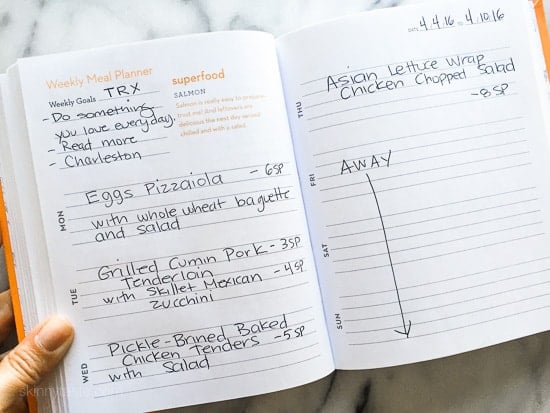 Weekly Meal Planner
Weekly Goals TRX
- Do something
you love everyday.
- Read more
- Charleston
superfood
SALMON
Salmon is really easy to prepare,
trust me! And leftovers are
delicious the next day served
chilled and with a salad.
MON
Eggs Pizzaiola - 6SP
with whole wheat baguette
and salad
TUE
Grilled Cumin Pork - 3SP
Tenderloin
with Skillet Mexican - 4SP
Zucchini
WED
Pickle-Brined Baked
Chicken Tenders - 5SP
with Salad
DATE 4.4.16 to 4.10.16
THU
Asian Lettuce Wrap
Chicken Chopped Salad
- 8SP
FRI
AWAY
SAT
SUN